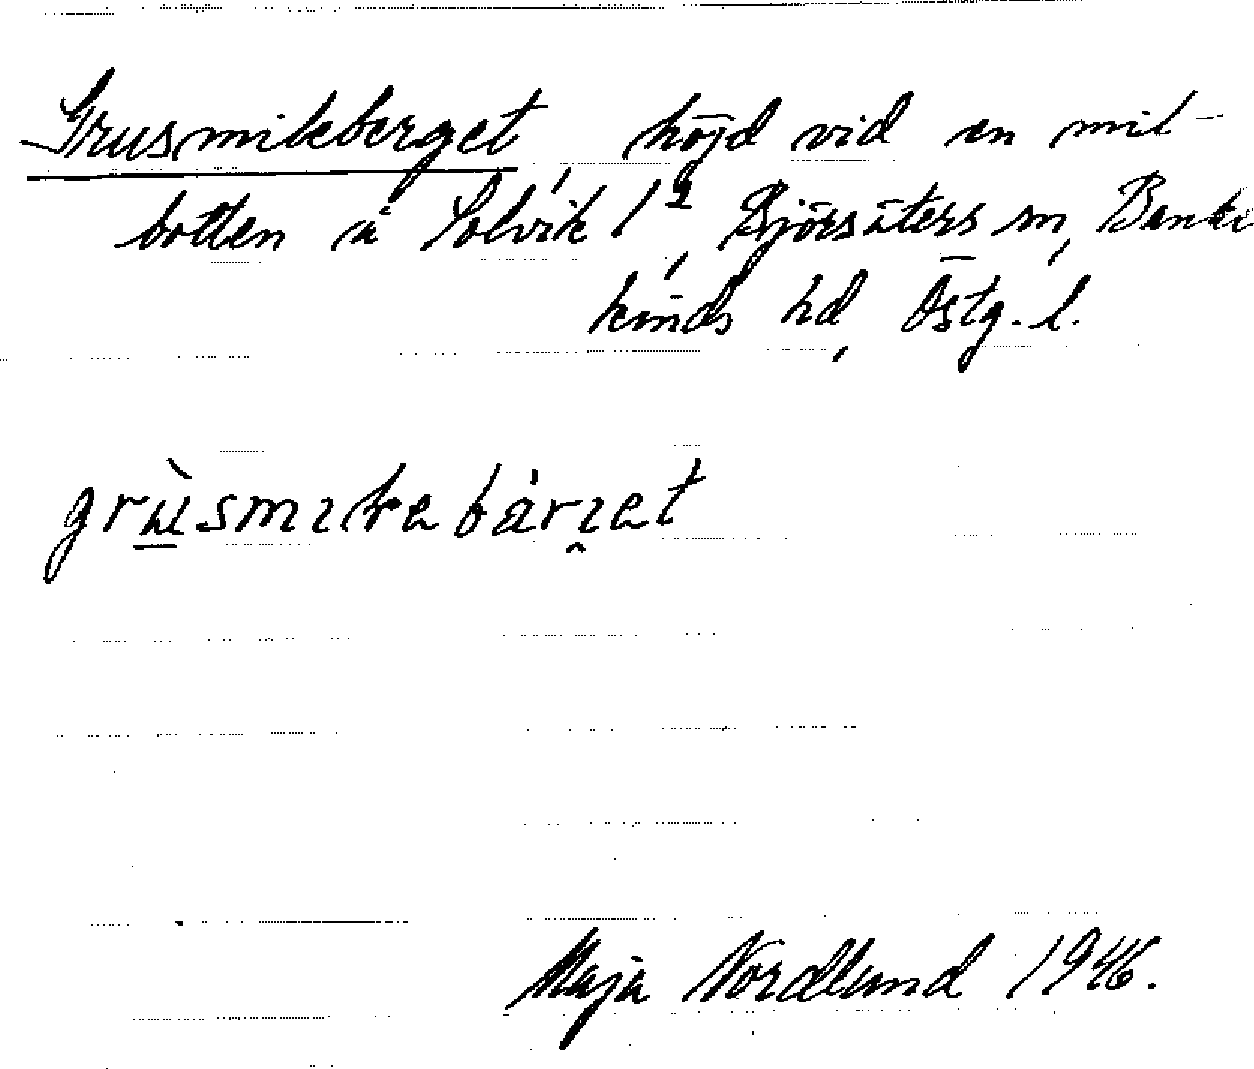 Grusmileberget, höjd vid en mil-
botten å Solvik 1², Björsäters sn, Banke
kinds hd, Östg. l.
grùsmılebärı̯et
Maja Nordlund 1946.